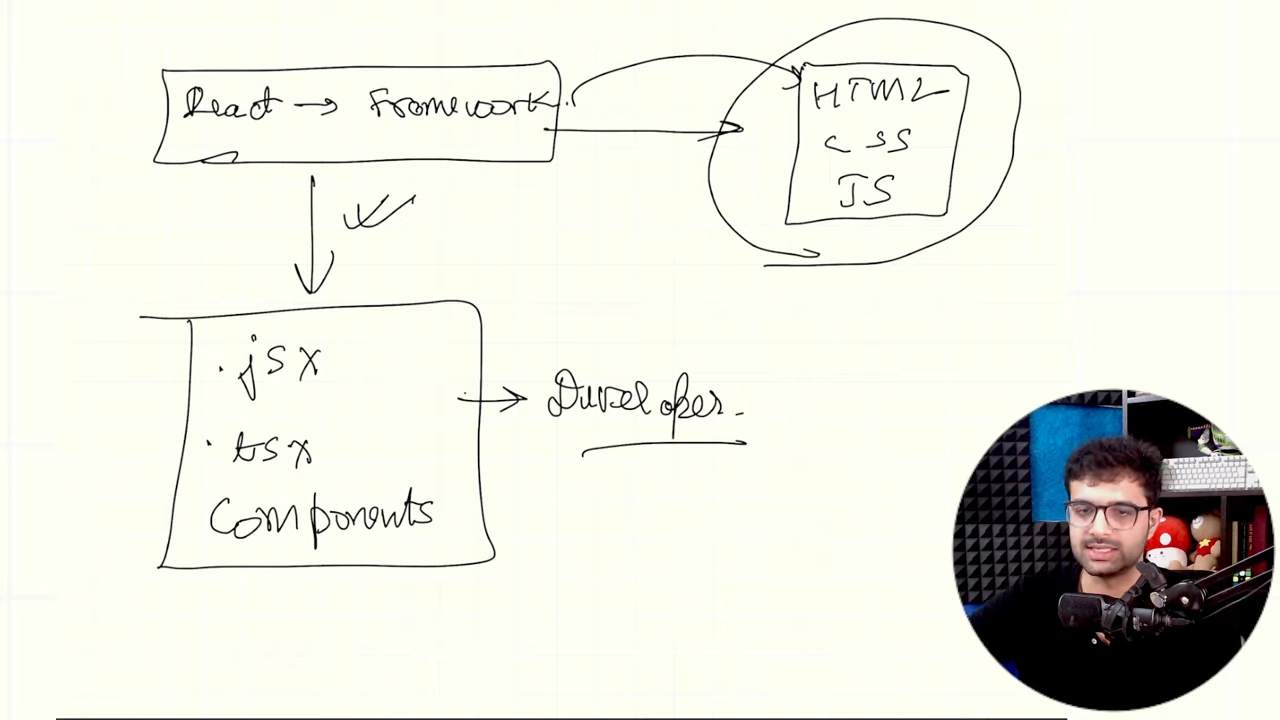 React → Framework.
HTML
CSS
JS
.jsx
.tsx
Components
Developer.